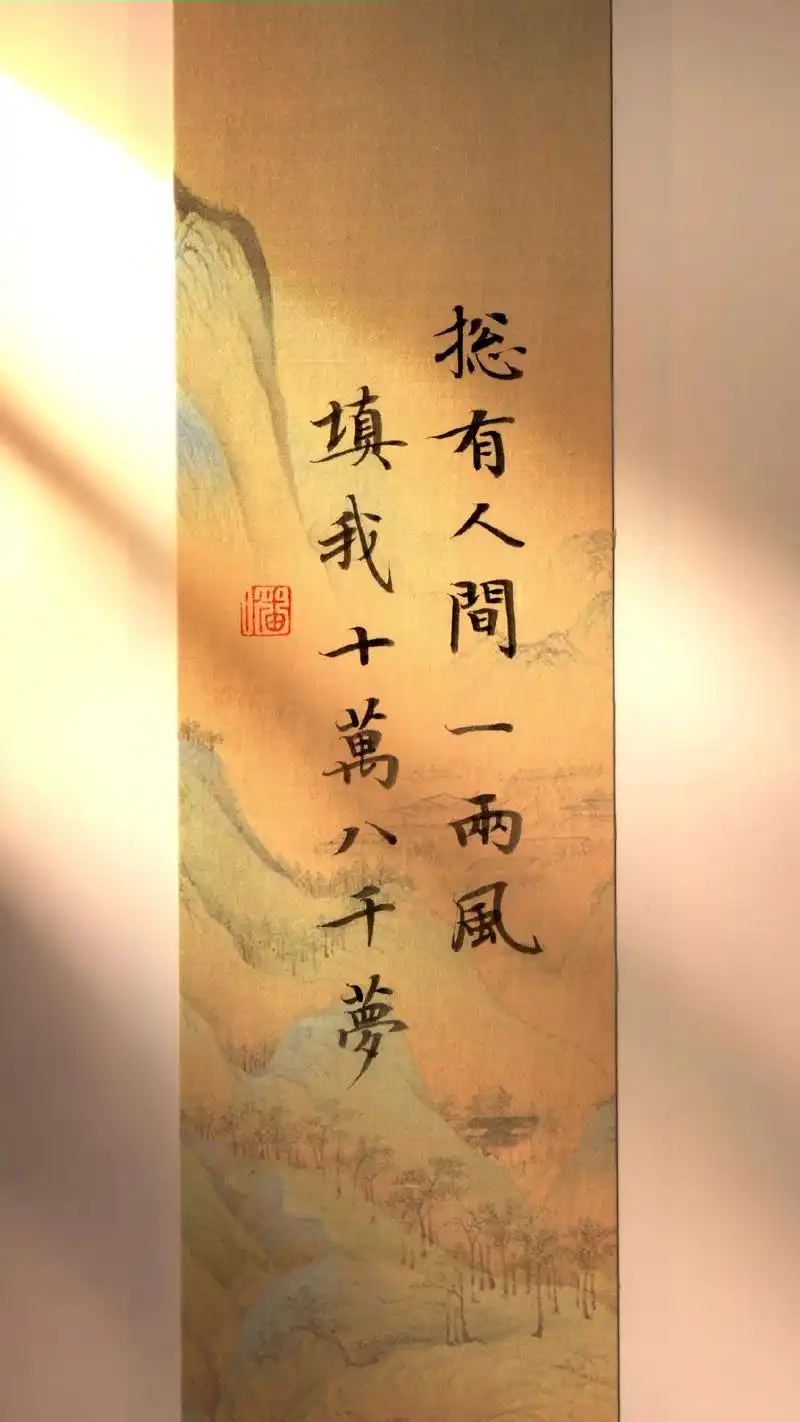 揔有人間一兩風
填我十萬八千夢